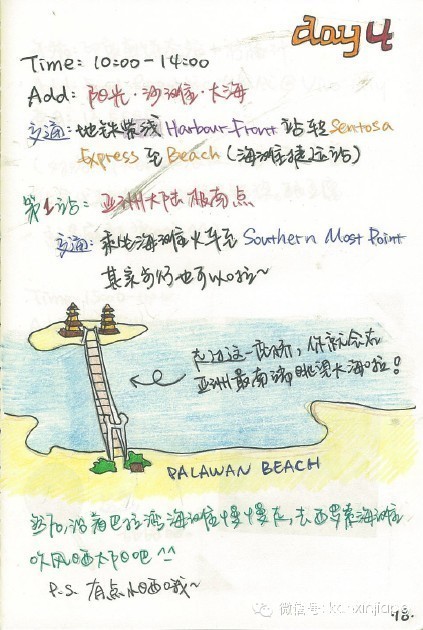 day 4
Time: 10:00-14:00
Add: 阳光·沙滩·大海
交通: 地铁紫线 Harbour Front 站转 Sentosa
Express 至 Beach (海滩捷运站)
第1站: 亚洲大陆极南点
交通: 乘坐海滩火车至 Southern Most Point
其实步行也可以啦~
走过这一座桥, 你就会在
亚洲最南端眺望大海啦!
PALAWAN BEACH
然后沿着巴拉湾海滩慢慢走, 去西罗索海滩
吹风晒太阳吧 ^^
P.S. 有点小晒哦~
微信号: kanxinjiapo
·18·